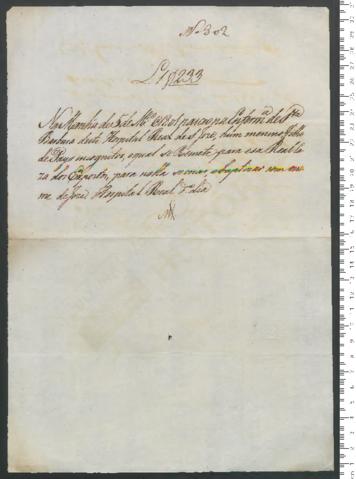 Nº 302
L 1º f 233
Na Manhã de 5 de Mço. de 1801 pareceo na Enferma. de Sta.
Barbara deste Hospital Real de S. Joze, hum menino filho
de Pays incognitos, o qual se Remete para essa Real Ca
za dos Expostos, para nella se criar, e baptizar com o no
me de Joze Hospital Real Era dia